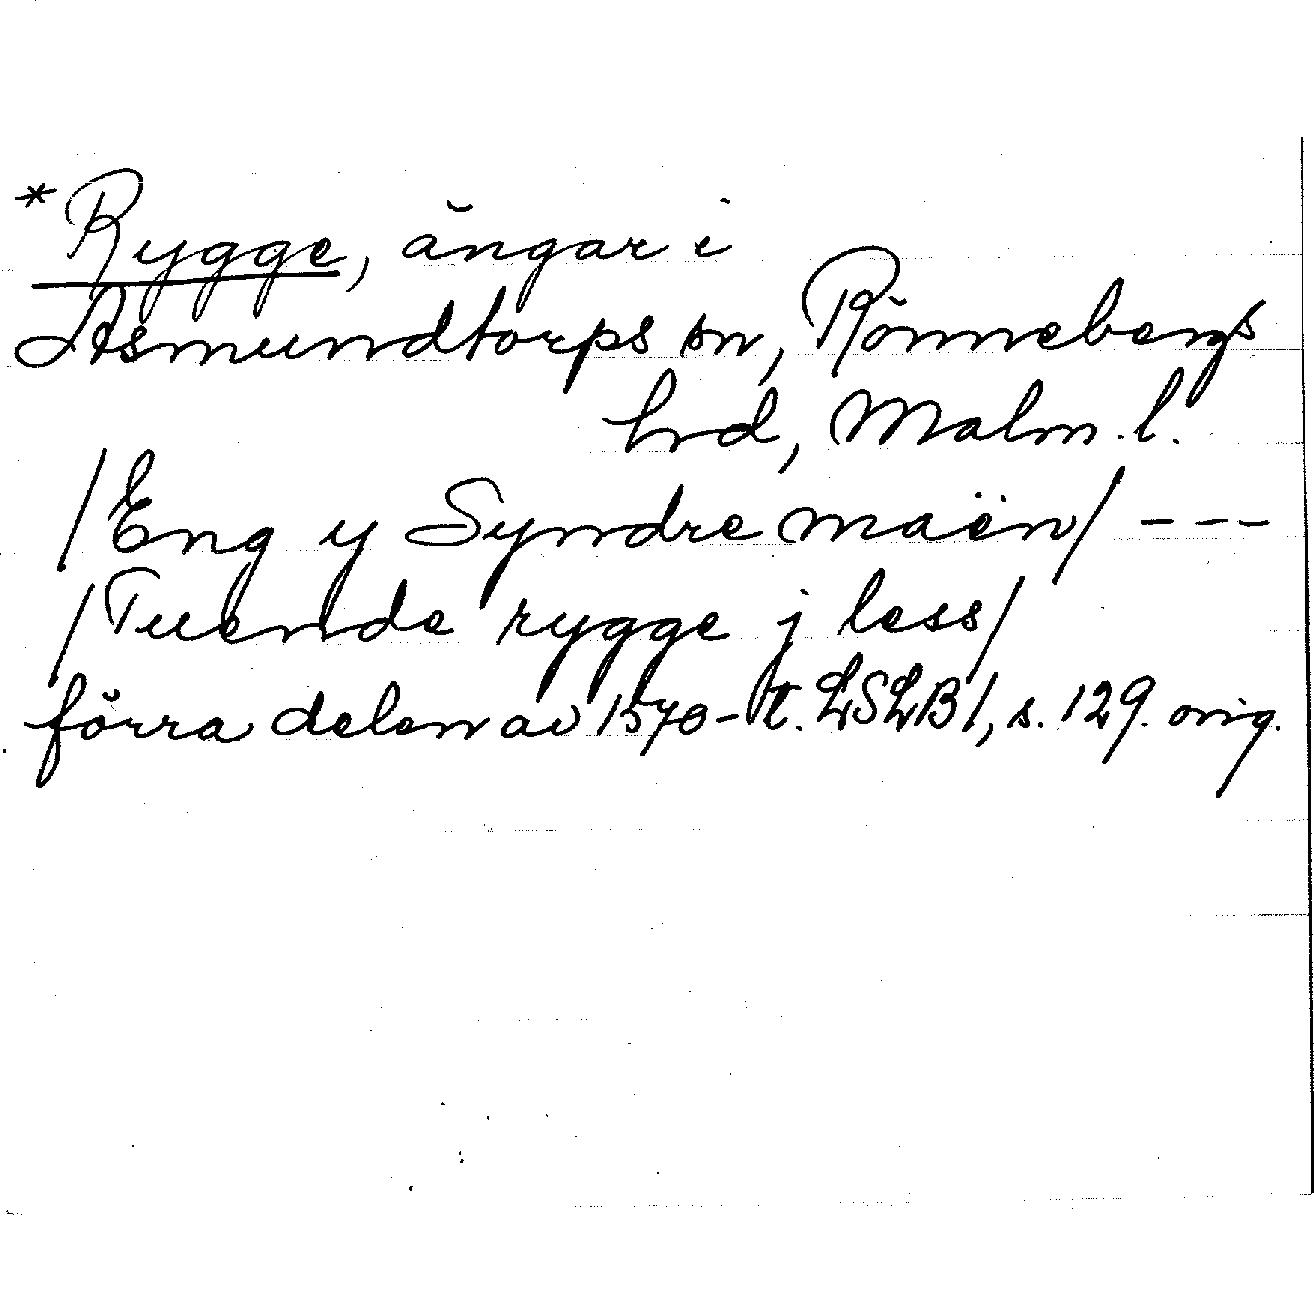 *Rygge, ängar i
Asmundtorps sn, Rönnebergs
hrd, Malm. l.
/Eng y Syndre maën/ ---
/Tuende rygge j less/
förra delen av 1570-t. LSLB 1, s. 129. orig.